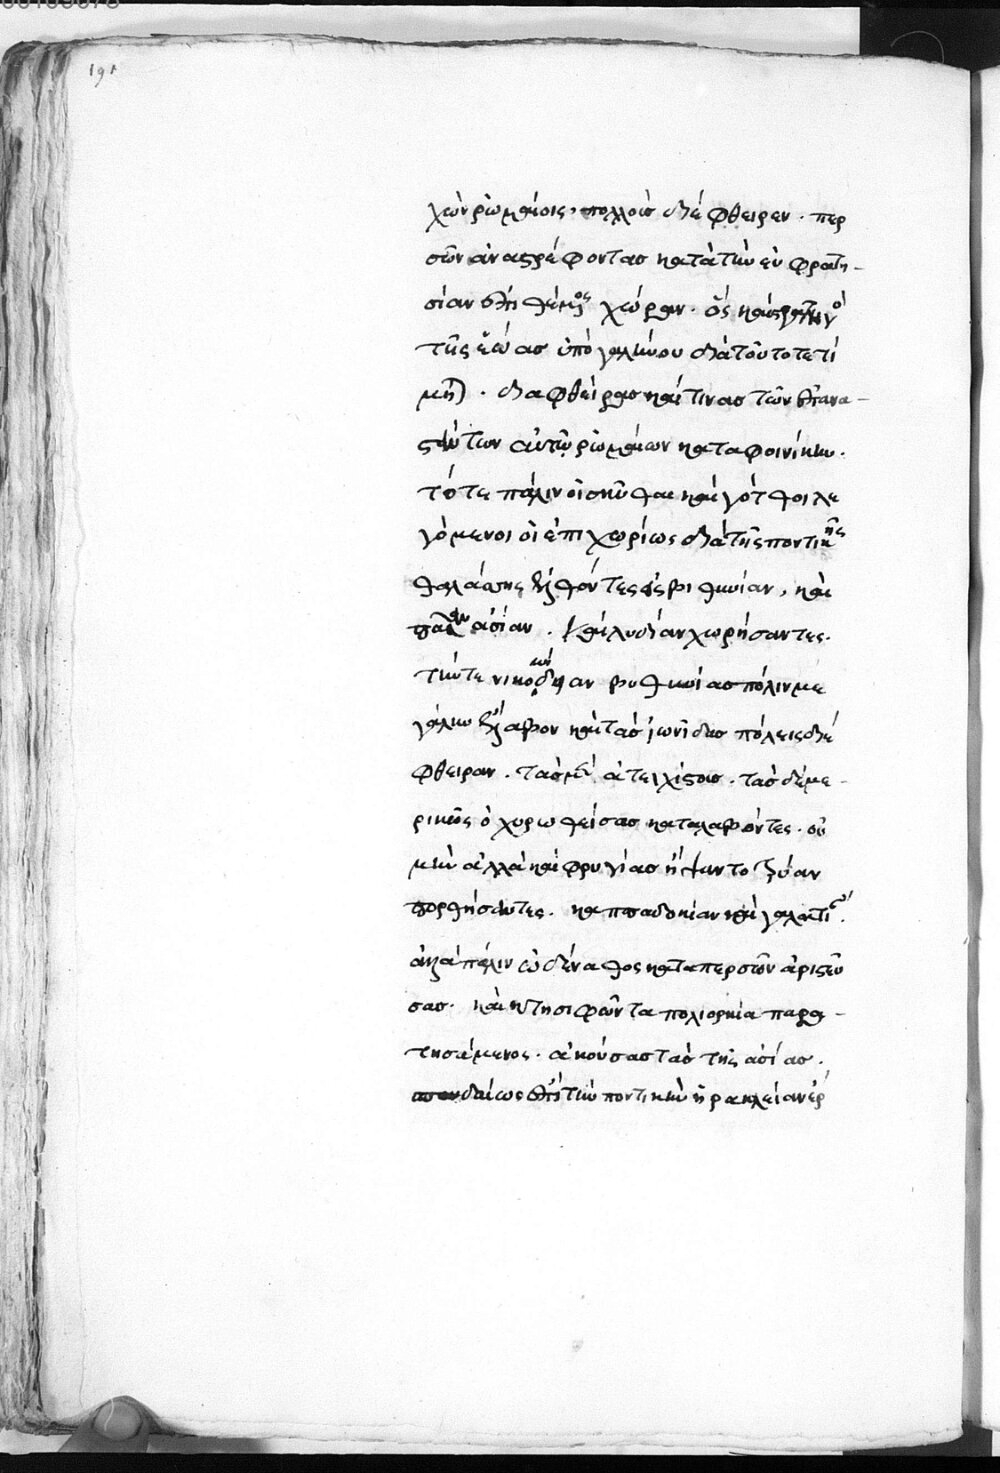 191
χων ῥωμαίοις, πολλοὺς διέφθειρεν. περ
σῶν ἀναστρέφοντας κατὰ τὴν εὐφρατη-
σίαν ἐπιθέμενος χώραν. ὃς καὶ στρατηγὸ
τῆς ἑῴας ὑπὸ γαλιήνου διὰ τοῦτο τετί
μηται. διαφθείρας καί τινας τῶν ἐπανα-
στάντων αὐτῷ ῥωμαίων κατὰ φοινίκην.
τότε πάλιν οἱ σκύθαι καὶ γότθοι λε
γόμενοι οἱ ἐπιχωρίως διὰ τῆς ποντικῆς
θαλάσσης ἐλθόντες εἰς βιθυνίαν, καὶ
πᾶσαν ἀσίαν. καὶ λυδίαν χωρήσαντες.
τήν τε νικομήδειαν βυθινίας πόλιν με
γάλην ἔλαβον καὶ τὰς ἰωνίδας πόλεις διέ
φθειραν. τὰς μὲν ἀτειχίστους. τὰς δὲ με-
ρικῶς ὀχυρωθείσας καταλαβόντες. οὐ
μὴν ἀλλὰ καὶ φρυγίας ἥψαντο τρόαν
πορθήσαντες. καππαδοκίαν καὶ γαλατίαν.
ἀλλὰ πάλιν ὠδέναθος κατὰ περσῶν ἀριστεύ
σας. καὶ κτησιφῶντα πολιορκία παρα-
στησάμενος. ἀκούσας τὰς τῆς ἀσίας.
σπουδαίως ἐπὶ τὴν ποντικὴν ἡράκλειαν ἔρ